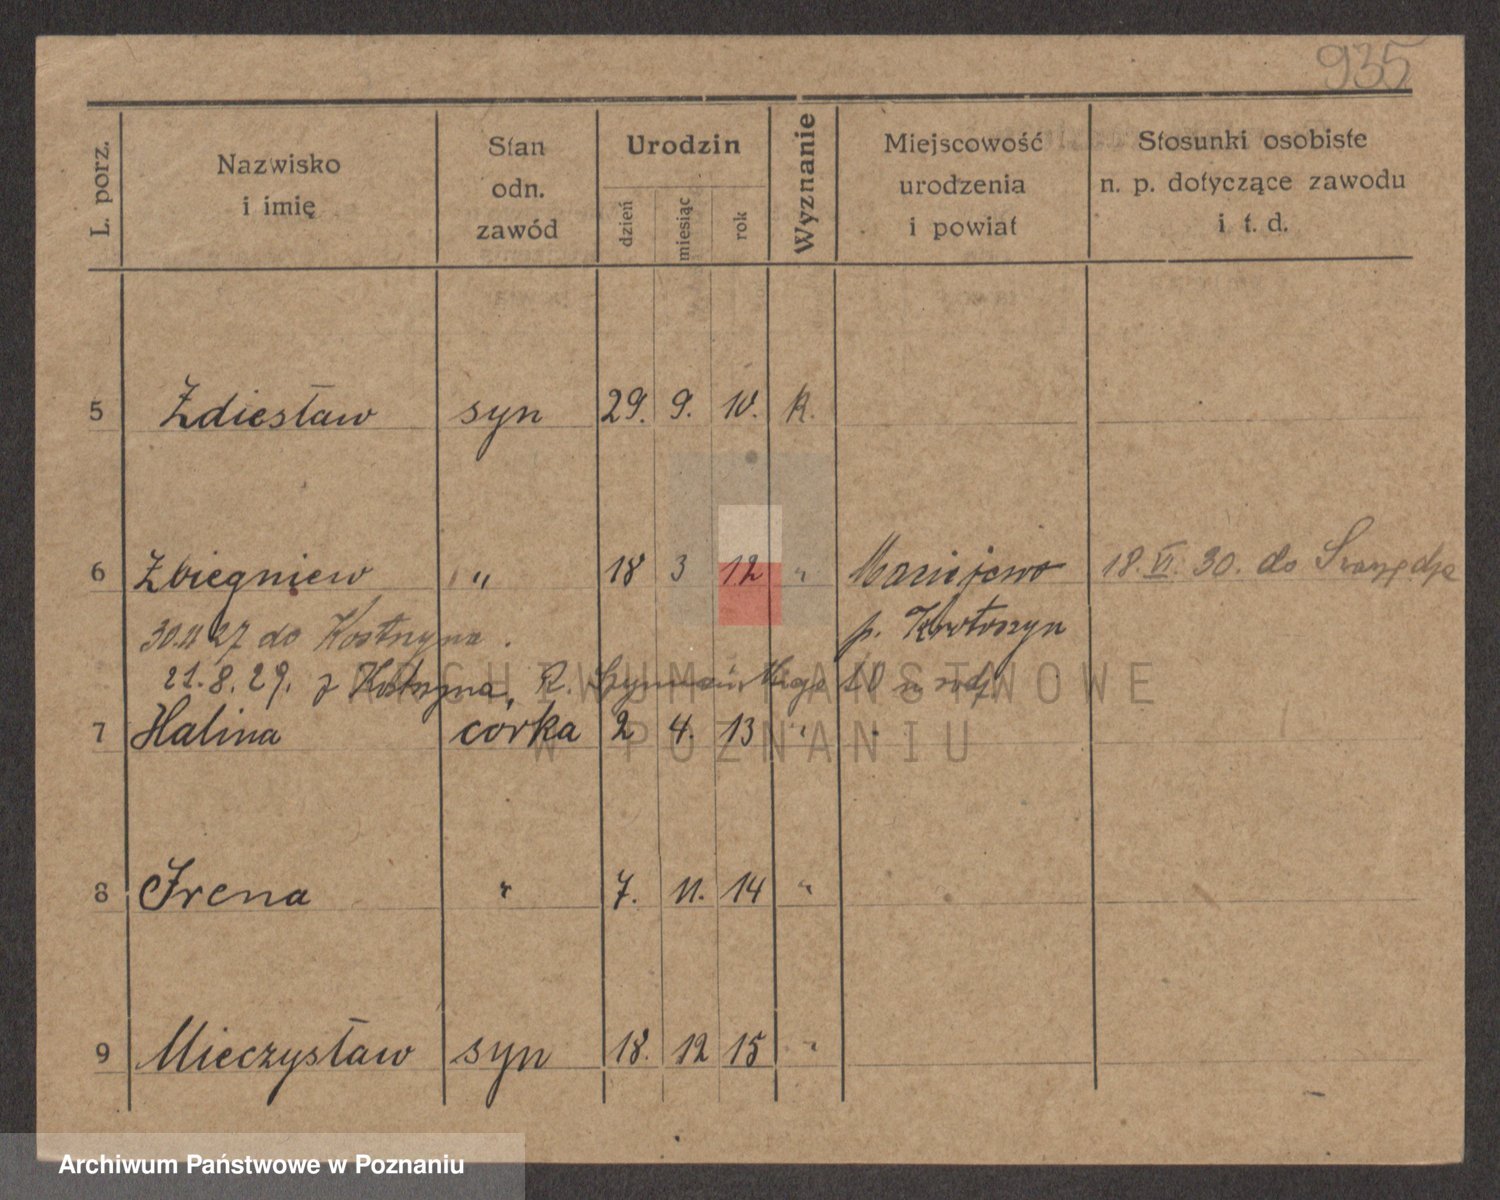 935
L. porz.
Nazwisko i imię
Stan odn. zawód
Urodzin
dzień miesiąc rok
Wyznanie
Miejscowość urodzenia i powiat
Stosunki osobiste n. p. dotyczące zawodu i t. d.
5 Zdiesław syn 29. 9. 10. k.
6 Zbiegniew " 18 3 12 " 18. VI. 30. do
p. Krotoszyn
30.11 27 do Kostrzyna.
21.8.29. z Kostrzyna,
7 Halina córka 2 4. 13 "
8 Irena " 7. 11. 14 "
9 Mieczysław syn 18. 12 15 "
ARCHIWUM PAŃSTWOWE
W POZNANIU
Archiwum Państwowe w Poznaniu